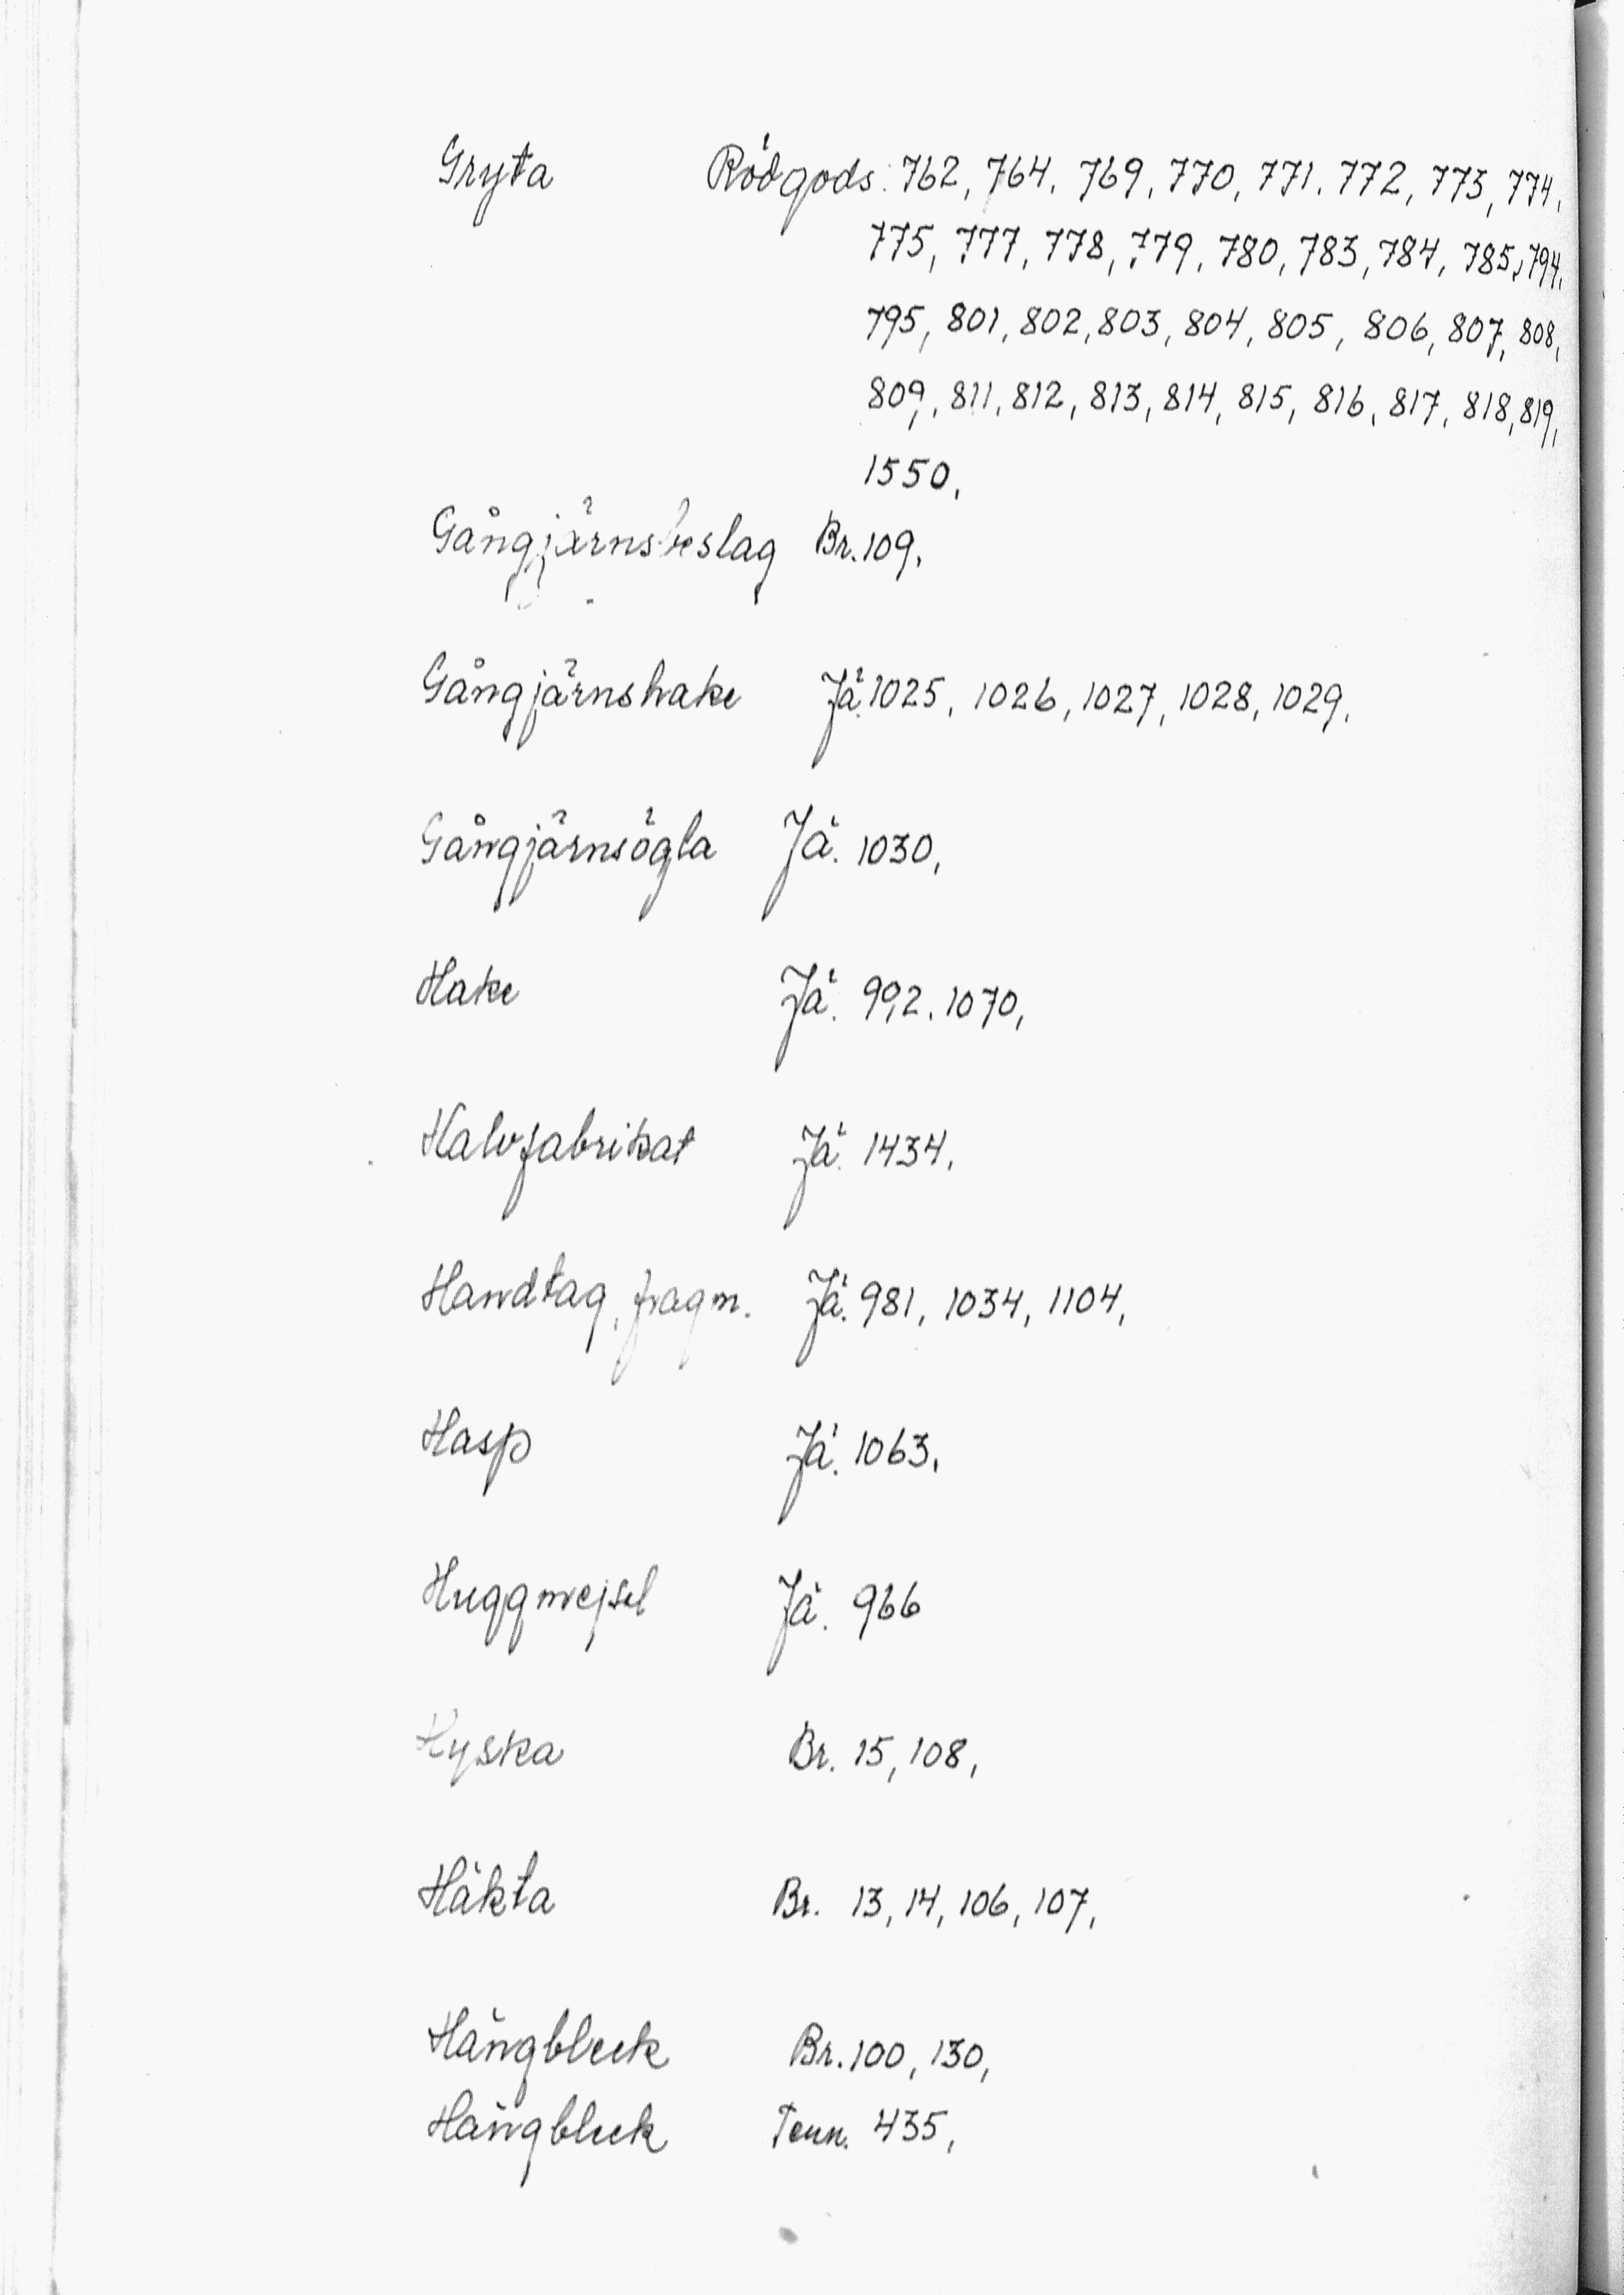 Gryta Rödgods: 762, 764, 769, 770, 771, 772, 773, 774,
775, 777, 778, 779, 780, 783, 784, 785, 794,
795, 801, 802, 803, 804, 805, 806, 807, 808,
809, 811, 812, 813, 814, 815, 816, 817, 818, 819,
1550,
Gångjärnsbeslag Br. 109,
Gångjärnshake Jä. 1025, 1026, 1027, 1028, 1029,
Gångjärnsögla Jä. 1030,
Hake Jä. 992, 1070,
Halvfabrikat Jä. 1434,
Handtag, fragm. Jä. 981, 1034, 1104,
Hasp Jä. 1063,
Huggmejsel Jä. 966
Hyska Br. 15, 108,
Häkta Br. 13, 14, 106, 107,
Hängbleck Br. 100, 130,
Hängbleck Tenn. 435,